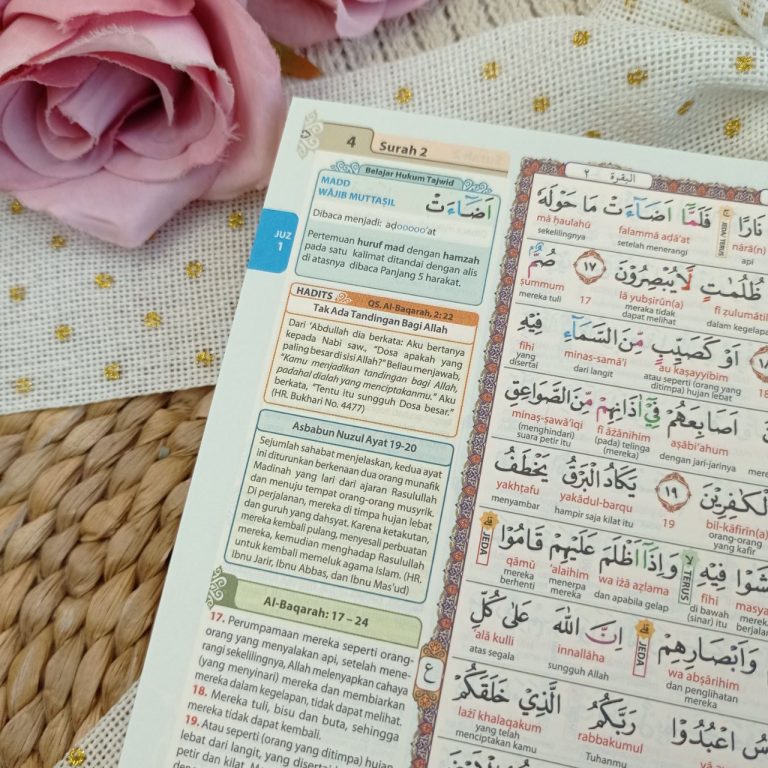 4 Surah 2
Belajar Hukum Tajwid
MADD
WĀJIB MUTTAṢIL
اَضَاۤءَتْ
Dibaca menjadi: aḍooooo'at
Pertemuan huruf mad dengan hamzah
pada satu kalimat ditandai dengan alis
di atasnya dibaca Panjang 5 harakat.
JUZ
1
HADITS
QS. Al-Baqarah, 2: 22
Tak Ada Tandingan Bagi Allah
Dari 'Abdullah dia berkata: Aku bertanya
kepada Nabi saw., "Dosa apakah yang
paling besar di sisi Allah?" Beliau menjawab,
"Kamu menjadikan tandingan bagi Allah,
padahal dialah yang menciptakanmu." Aku
berkata, "Tentu itu sungguh Dosa besar."
(HR. Bukhari No. 4477)
Asbabun Nuzul Ayat 19-20
Sejumlah sahabat menjelaskan, kedua ayat
ini diturunkan berkenaan dua orang munafik
Madinah yang lari dari ajaran Rasulullah
dan menuju tempat orang-orang musyrik.
Di perjalanan, mereka di timpa hujan lebat
dan guruh yang dahsyat. Karena ketakutan,
mereka kembali pulang, menyesali perbuatan
mereka, kemudian menghadap Rasulullah
untuk kembali memeluk agama Islam. (HR.
Ibnu Jarir, Ibnu Abbas, dan Ibnu Mas'ud)
Al-Baqarah: 17 – 24
17. Perumpamaan mereka seperti orang-
orang yang menyalakan api, setelah mene-
rangi sekelilingnya, Allah melenyapkan cahaya
(yang menyinari) mereka dan membiarkan
mereka dalam kegelapan, tidak dapat melihat.
18. Mereka tuli, bisu dan buta, sehingga
mereka tidak dapat kembali.
19. Atau seperti (orang yang ditimpa) hujan
lebat dari langit, yang disertai
petir dan kilat. M
البقرة ٢
نَارًا فَلَمَّآ اَضَاۤءَتْ مَا حَوْلَهٗ
nāra(n) falammā aḍā'at mā ḥaulahū
api setelah menerangi sekelilingnya
ظُلُمٰتٍ لَّا يُبْصِرُوْنَ ١٧ صُمٌّ
fī ẓulumāti lā yubṣirūn(a) 17 ṣummum
dalam kegelapa mereka tidak mereka tuli
dapat melihat
اَوْ كَصَيِّبٍ مِّنَ السَّمَاۤءِ فِيْهِ
au kaṣayyibim minas-samā'i fīhi
atau seperti (orang yang dari langit disertai
ditimpa) hujan lebat
اَصَابِعَهُمْ فِيْٓ اٰذَانِهِمْ مِّنَ الصَّوَاعِقِ
aṣābi'ahum fī āżānihim minaṣ-ṣawā'iqi
dengan jari-jarinya (pada) telinga (menghindari)
(mereka) suara petir itu
بِالْكٰفِرِيْنَ ١٩ يَكَادُ الْبَرْقُ يَخْطَفُ
bil-kāfirīn(a) 19 yakādul-barqu yakhṭafu
orang-orang hampir saja kilat itu menyambar
yang kafir
مَّشَوْا فِيْهِ وَاِذَآ اَظْلَمَ عَلَيْهِمْ قَامُوْا
masya fīhi TERUS wa iżā aẓlama 'alaihim qāmū JEDA
di bawah dan apabila gelap menerpa mereka
(sinar) itu mereka berhenti
وَاَبْصَارِهِمْ اِنَّ اللّٰهَ عَلٰى كُلِّ
wa abṣārihim JEDA innallāha alā kulli
dan penglihatan sungguh Allah atas segala
mereka
اعْبُدُوْا رَبَّكُمُ الَّذِيْ خَلَقَكُمْ
rabbakumul lażī khalaqakum
Tuhanmu yang telah
menciptakan kamu